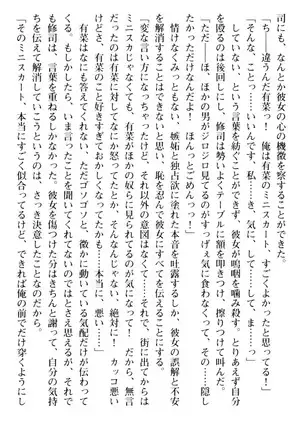 司にも、なんとか彼女の心の機微を察することができた。
「ち――違うんだ有菜っ！　俺は有菜のミニスカート、すごくよかったと思ってる！」
「そんな……っ、いいんです、私……き、気にして、ない……っ」
していない、という言葉を紡ぐことができず、彼女が嗚咽を噛み殺す。とりあえず自分
を殴るのは後回し、修司は勢いよくテーブルに額を叩きつけ、擦りつけて叫んだ。
「ただ！　ほ、ほかの男がジロジロ見てるのがすっげぇ気に食わなくって、その……隠し
たかっただけなんだよ！　ほんっとごめんっっ！」
情けなくみっともない、嫉妬と独占欲にまみれた本音を吐露するしか、彼女の誤解と不安
を解消することはできないと思い、恥を忍んで彼女にすべてを伝えることにする。
「変な言い方になっちゃったけど、それ以外の意図はなくて……それで、街に出てからは
ミニスカじゃなくても、有菜がほかの奴らに見られてるのが気になって！　だから、無言
だったのは有菜に対してなにか怒ってたとか、そんなんじゃない、絶対に！　カッコ悪い
けど、有菜のこと好きすぎておかしくなってたから……本当に、悪い……」
有菜はなにも答えてくれない、ただゴソゴソと、微かに動いている気配だけが伝わって
くる。もしかしたら、いま言ったことを聞いてくれてないのかもしれない、だが、それで
も修司は、言葉を重ねるしかなかった。彼女を傷つけた分はきちんと謝って、自分の気持
ちを伝えて解消していこうというのは、さっき決意したことなのだから。
「そのミニスカート、本当にすごく似合ってるけど、できれば俺の前でだけ穿くようにし